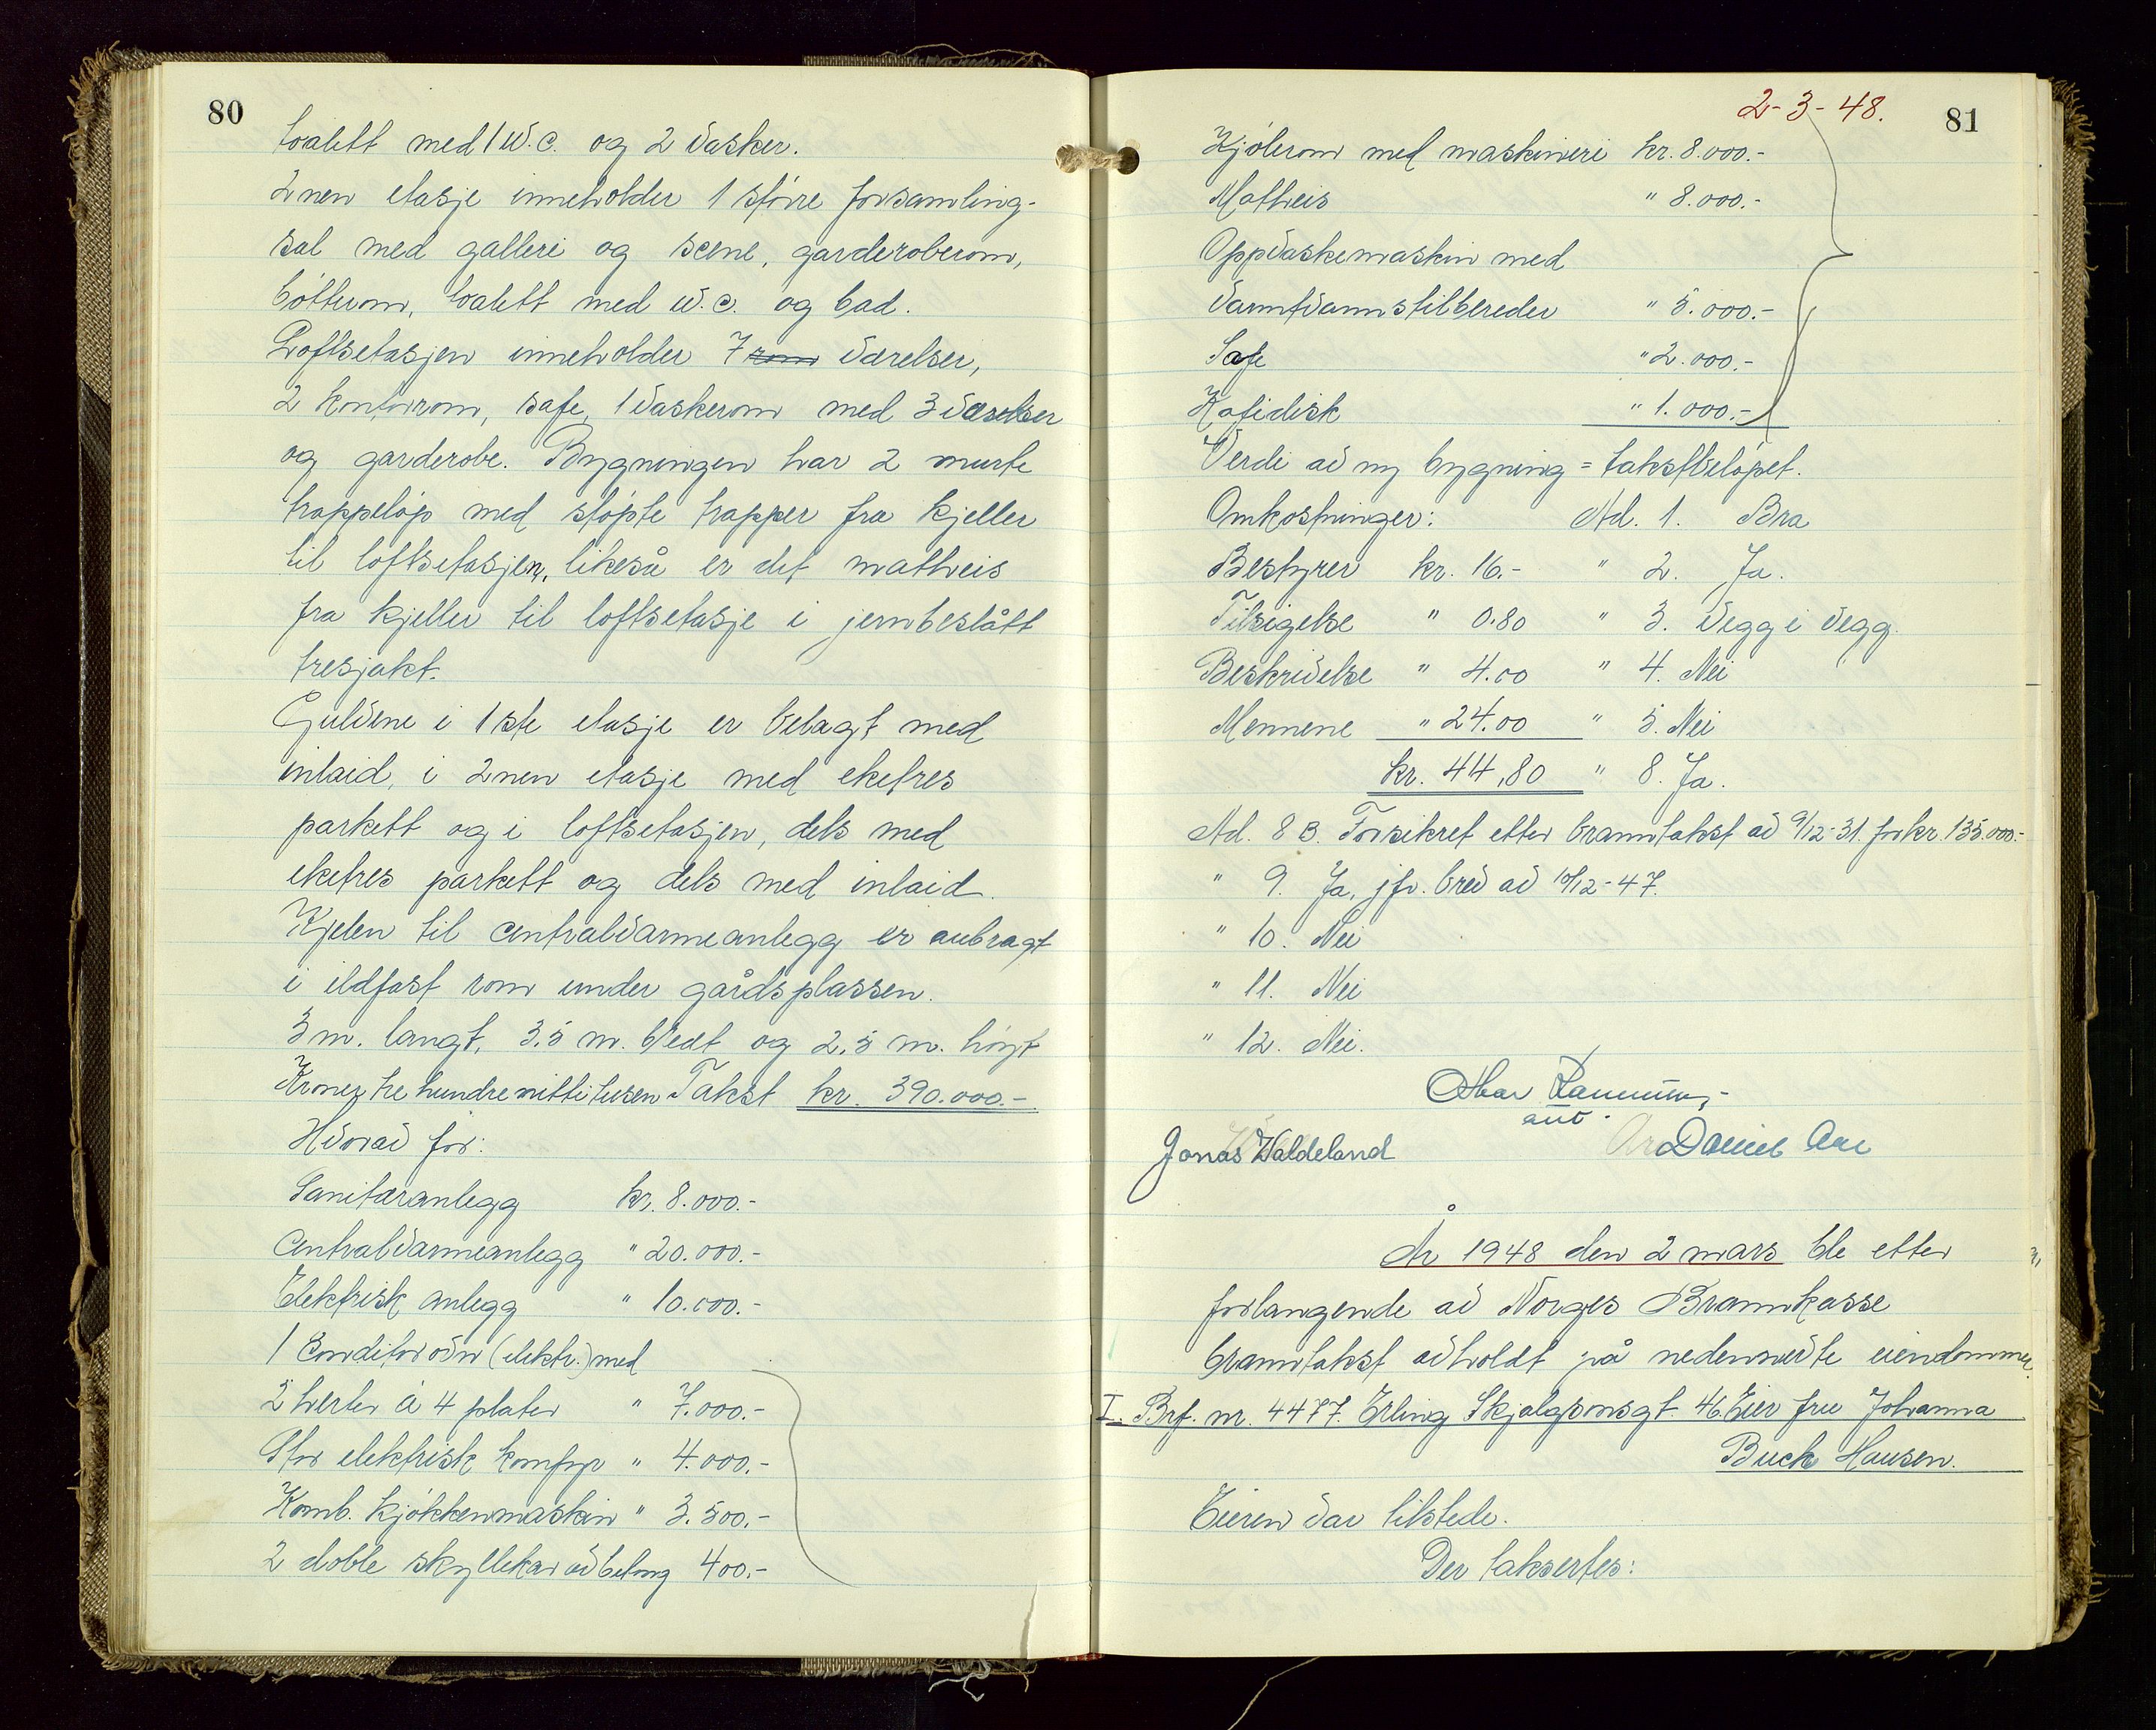 80
toalett med 1 W.C. og 2 vasker.
2nen etasje inneholder 1 större forsamling-
sal med galleri og scene, garderoberom,
bötterom, toalett med W.C. og bad.
Loftsetasjen inneholder 7 rom værelser,
2 kontorrom, safe, 1 vaskerom med 3 værelser
og garderobe. Bygningen har 2 murte
trappelöp med stöpte trapper fra kjeller
til loftsetasjen, likeså er det matheis
fra kjeller til loftsetasje i jernbeslått
tresjakt.
Gulvene i 1ste etasje er belagt med
inlaid, i 2nen etasje med eketres
parkett og i loftsetasjen, dels med
eketres parkett og dels med inlaid.
Kjelen til centralvarmeanlegg er anbragt
i ildfast rom under gårdsplassen.
3 m. langt, 3.5 m. bredt og 2.5 m. höyt
Kroner tre hundre nitti tusen Takst kr. 390.000.-
Hvorav for:
Sanitæranlegg kr. 8.000.-
Centralvarmeanlegg " 20.000.-
Elektrisk anlegg " 10.000.-
1 Conditorovn (elektr.) med
2 herter à 4 plater " 7.000.-
Stor elektrisk komfyr " 4.000.-
Komb. kjökkenmaskin " 3.500.-
2 doble skyllekar av betong 400.-
2-3-48.
81
Kjölerom med maskineri kr. 8.000.-
Matheis " 8.000.-
Oppvaskemaskin med
varmtvannstilbereder " 5.000.-
Safe " 2.000.-
Kafidisk " 1.000.-
Verdi av ny bygning = takstbelöpet.
Omkostninger: Ad. 1. Bra
Bestyrer kr. 16.- " 2. Ja.
Tilsigelse " 0.80 " 3. Vegg i vegg.
Beskrivelse " 4.00 " 4. Nei
Mennene " 24.00 " 5. Nei
kr. 44,80 " 8. Ja.
Ad. 8 B. Forsikret etter branntakst av 9/12-31. for kr. 135.000.-
" 9. Ja, jfr. brev av 10/12-47.
" 10. Nei
" 11. Nei
" 12. Nei.
Jonas Waldeland
Daniel Aae
År 1948 den 2 mars ble etter
forlangende av Norges Brannkasse
branntakst avholdt på nedennevnte eiendommer
I. Brf. nr. 4477. Erling Skjalgsonsgt. 46. Eier fru Johanna
Buck Hansen.
Eieren var tilstede.
Der taksertes: